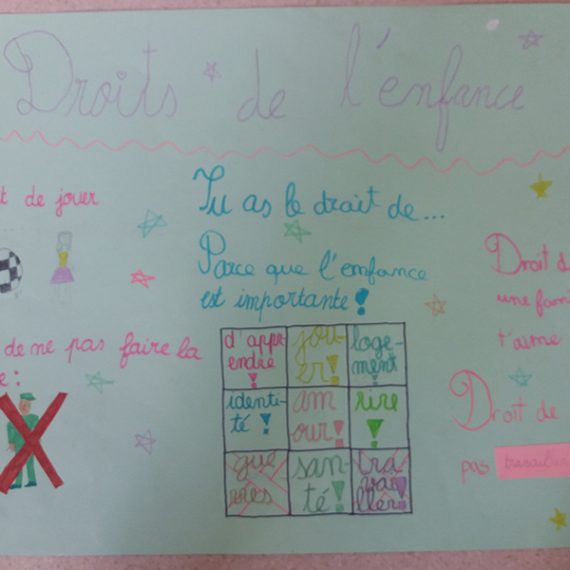 Droits de l'enfance
t de jouer
Tu as le droit de...
Parce que l'enfance
est importante !
Droit d
une fam
t'aime
de ne pas faire la
e :
d'appr
endre !
jou-
er !
loge-
ment !
identi-
té !
am
our !
rire
!
gue
rres
san-
té !
tra
vai
ller !
Droit de
pas travailler